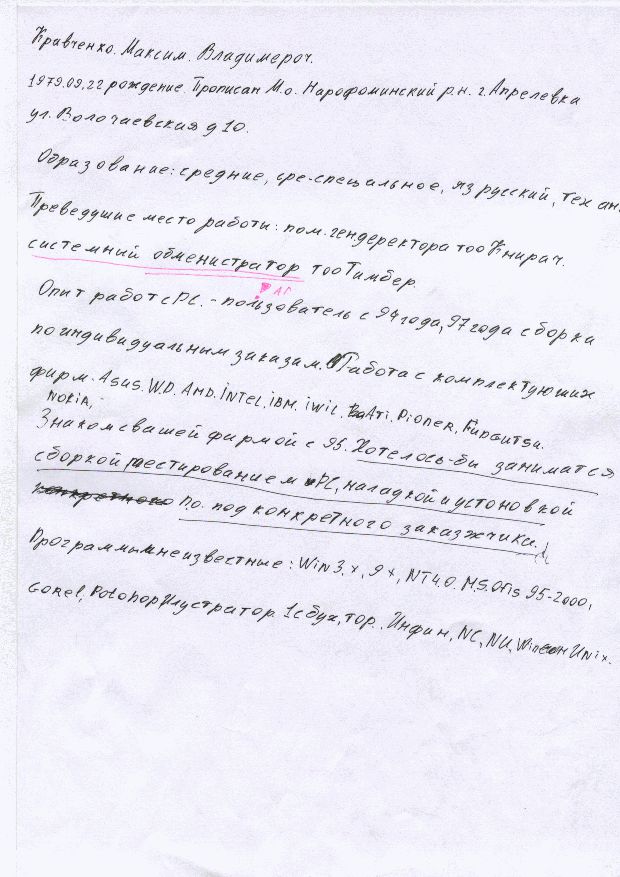 Кравченко. Максим. Владимероч.
1979.09.22 рождение. Прописан М.о. Нарофоминский р.н. г. Апрелевка
ул. Волочаевская д 10.
Образование: средние, сре-специльное, яз русский, тех ан.
Преведушие место работи: пом. гендеректора тоо Книрач.
системний обменистратор тоо Тимбер.
Опит работ с PC. - пользователь с 94 года, 97 года сборка
по индивидуальним заказам. Работа с комплектующих
фирм. Asus. W.D. AMD. İNTEL. iBM. iWiL. Ati. Pioner. Fungutsu.
NOKiA,
Знаком с вашей фирмой с 95. Хотелось-би заниматся
сборкой, тестированием PC, наладкой и устоновкой
по. под конкретного заказжчики.
Програмыи мне известные: Win 3.x, 9x, NT4.0. M.S. Ofis 95-2000,
Gorel, Potohop Илустратор. 1с бух, тор., Инфин, NC, NU, Unix.